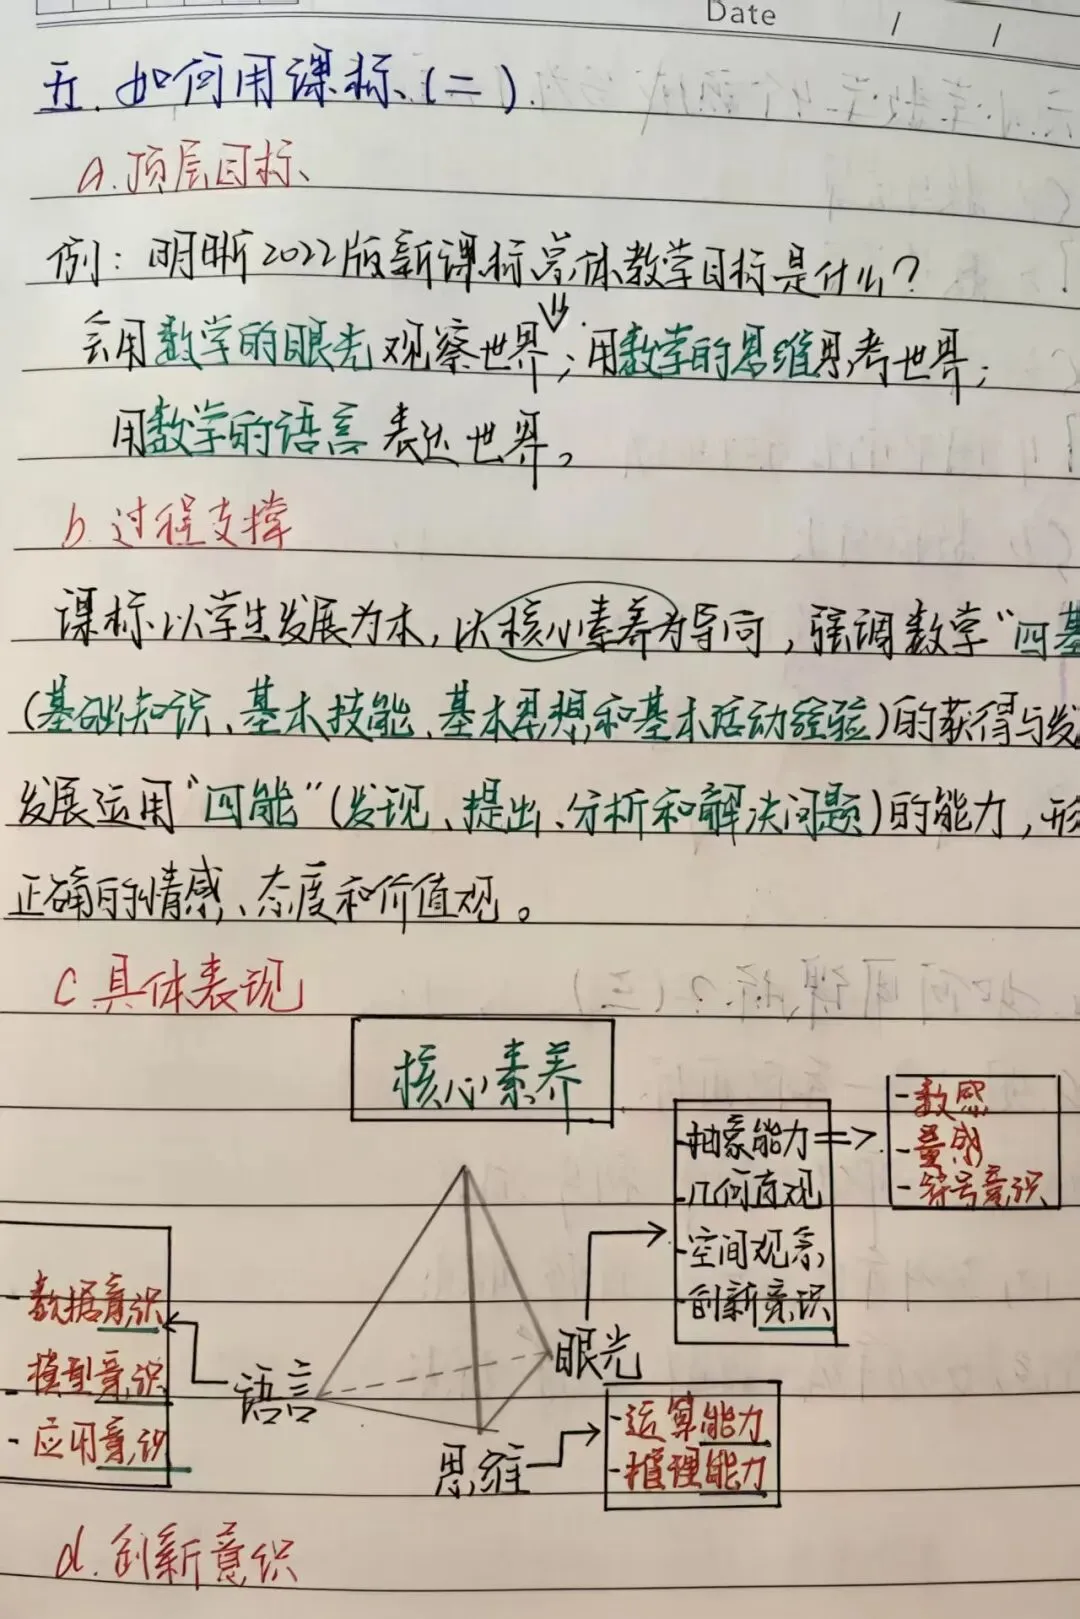 Date / /
五.如何用课标(二)
a.顶层目标
例:明晰2022版新课标总体教学目标是什么?
会用数学的眼光观察世界;用数学的思维思考世界;
用数学的语言表达世界。
b.过程支撑
课标以学生发展为本,以核心素养为导向,强调数学“四基
(基础知识、基本技能、基本思想和基本活动经验)的获得与发
发展运用“四能”(发现、提出、分析和解决问题)的能力,形
正确的情感、态度和价值观。
c.具体表现
核心素养
-抽象能力=>
-几何直观
-空间观念
-创新意识
-数感
-量感
-符号意识
-数据意识
-模型意识
-应用意识
语言
眼光
思维
-运算能力
-推理能力
d.创新意识